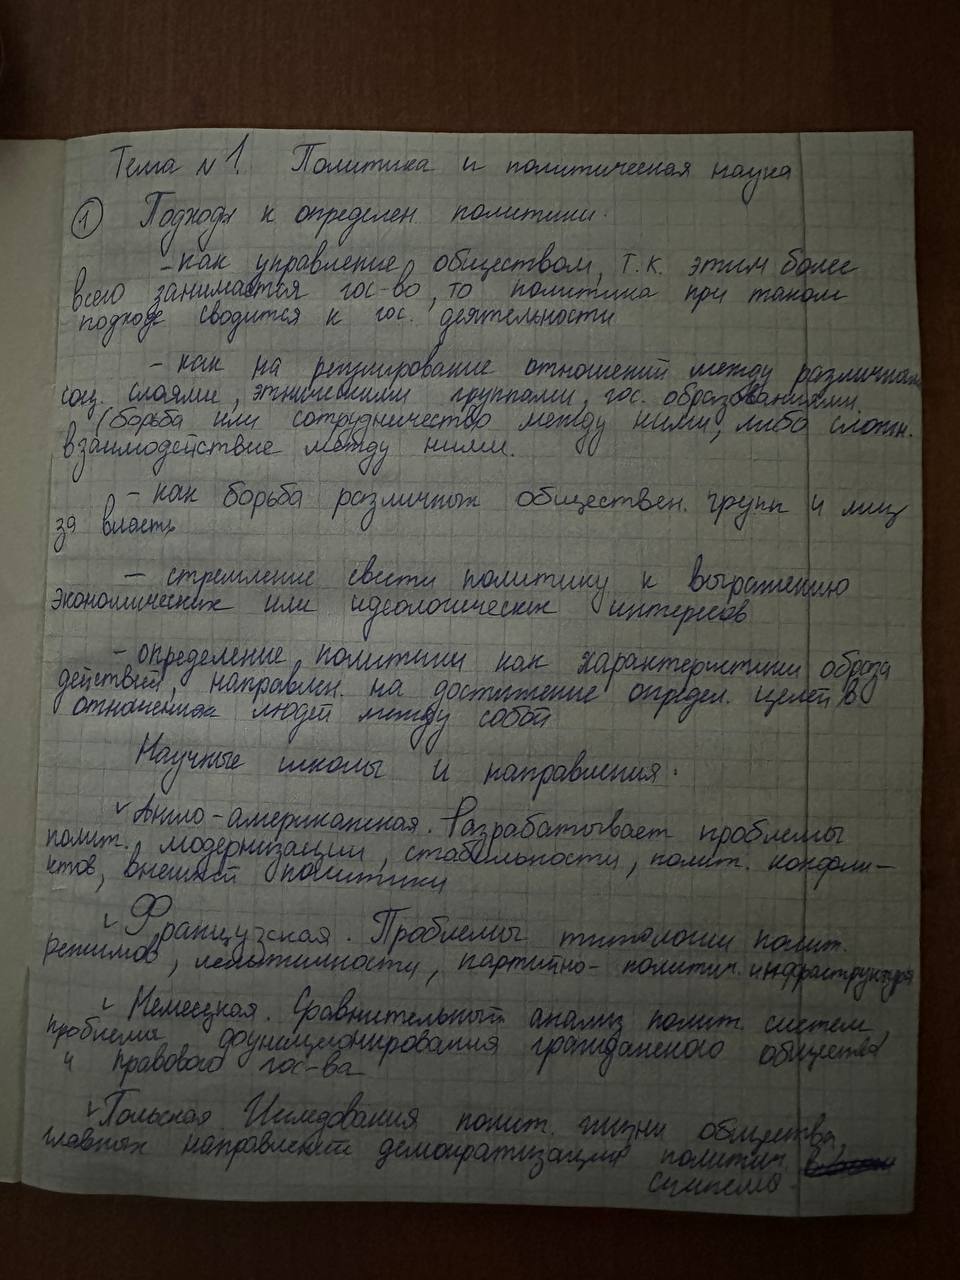 Тема №1. Политика и политическая наука
① Подходы к определен. политики.
- как управление обществом, т.к. этим более
всего занимается гос-во, то политика при таком
подходе сводится к гос. деятельности
- как на регулирование отношений между различными
соц. слоями, этническими группами, гос. образованиями
(борьба или сотрудничество между ними, либо сложн.
взаимодействие между ними.
- как борьба различных обществен. групп и лиц
за власть
- стремление свести политику к выражению
экономических или идеологических интересов
- определение политики как характеристики образа
действий, направлен. на достижение определ. целей в
отношениях людей между собой
Научные школы и направления.
✓ Англо-американская. Разрабатывает проблемы
полит. модернизации, стабильности, полит. конфли-
ктов, внешней политики
✓ Французская. Проблемы типологии полит.
режимов, легитимности, партийно-политич. инфраструктура
✓ Немецкая. Сравнительный анализ полит. систем,
проблемы функционирования гражданского общества
и правового гос-ва
✓ Польская Исследования полит. жизни общества,
главных направлений демократизации политич.
системы.